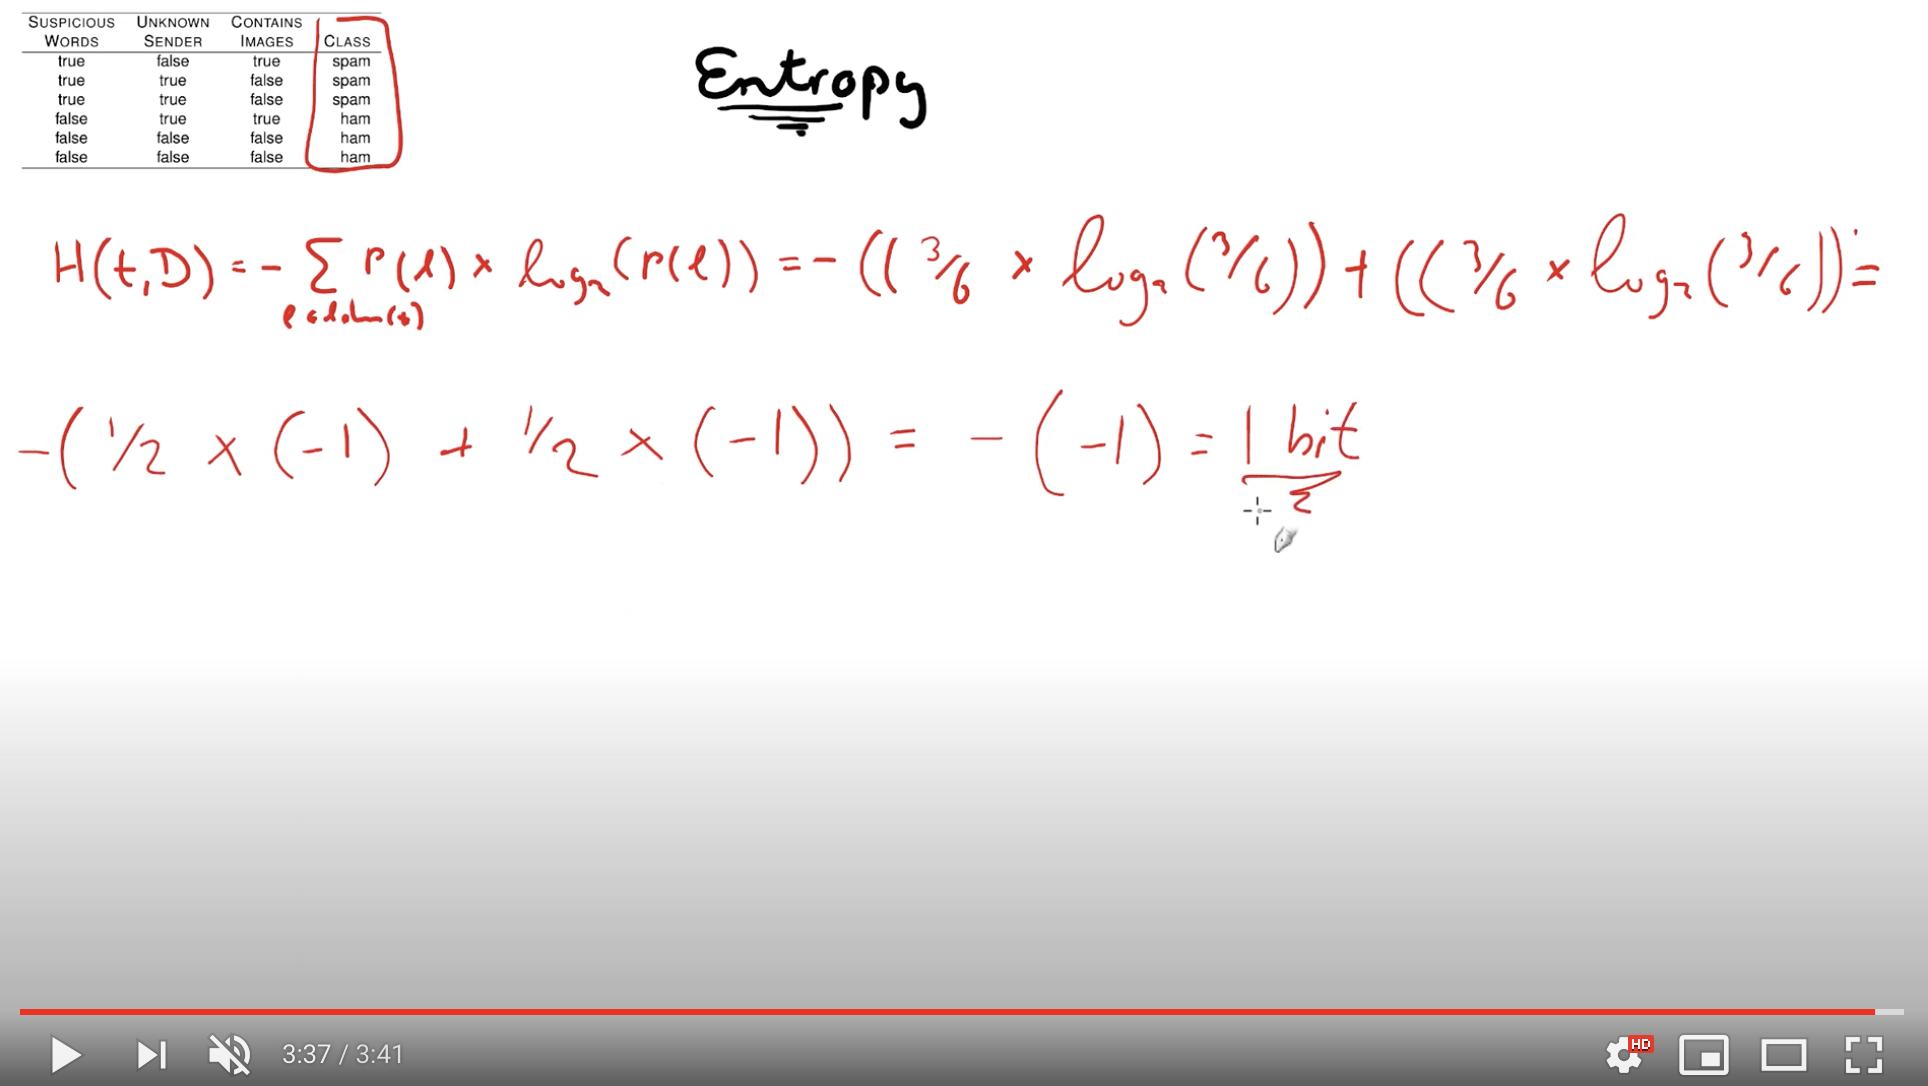 SUSPICIOUS UNKNOWN CONTAINS
WORDS SENDER IMAGES CLASS
true false true spam
true true false spam
true true false spam
false true true ham
false false false ham
false false false ham
Entropy
H(t,D) = - ∑ P(l) × log₂(P(l)) = - ((3/6 × log₂(3/6)) + ((3/6 × log₂(3/6)) =
-(1/2 × (-1) + 1/2 × (-1)) = - (-1) = 1 bit
3:37 / 3:41
HD